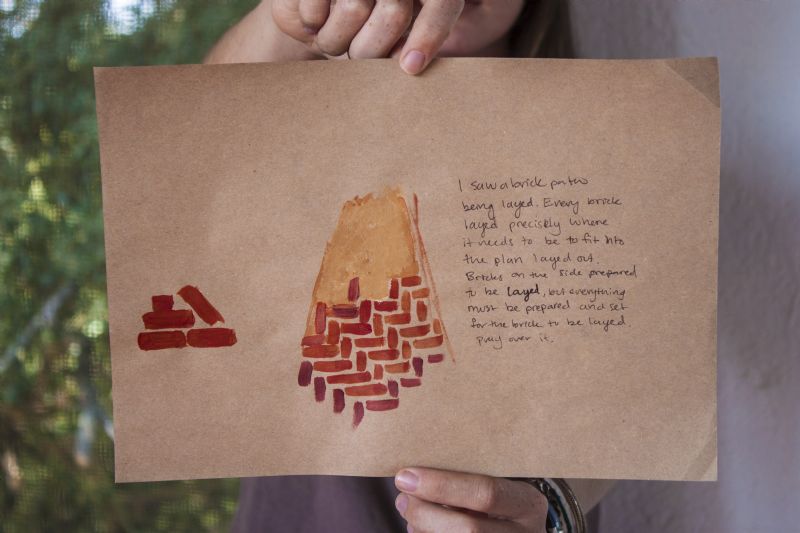 I saw a brick patio
being layed. Every brick
layed precisely where
it needs to be to fit into
the plan layed out.
Bricks on the side prepared
to be layed, but everything
must be prepared and set
for the brick to be layed
pray over it.